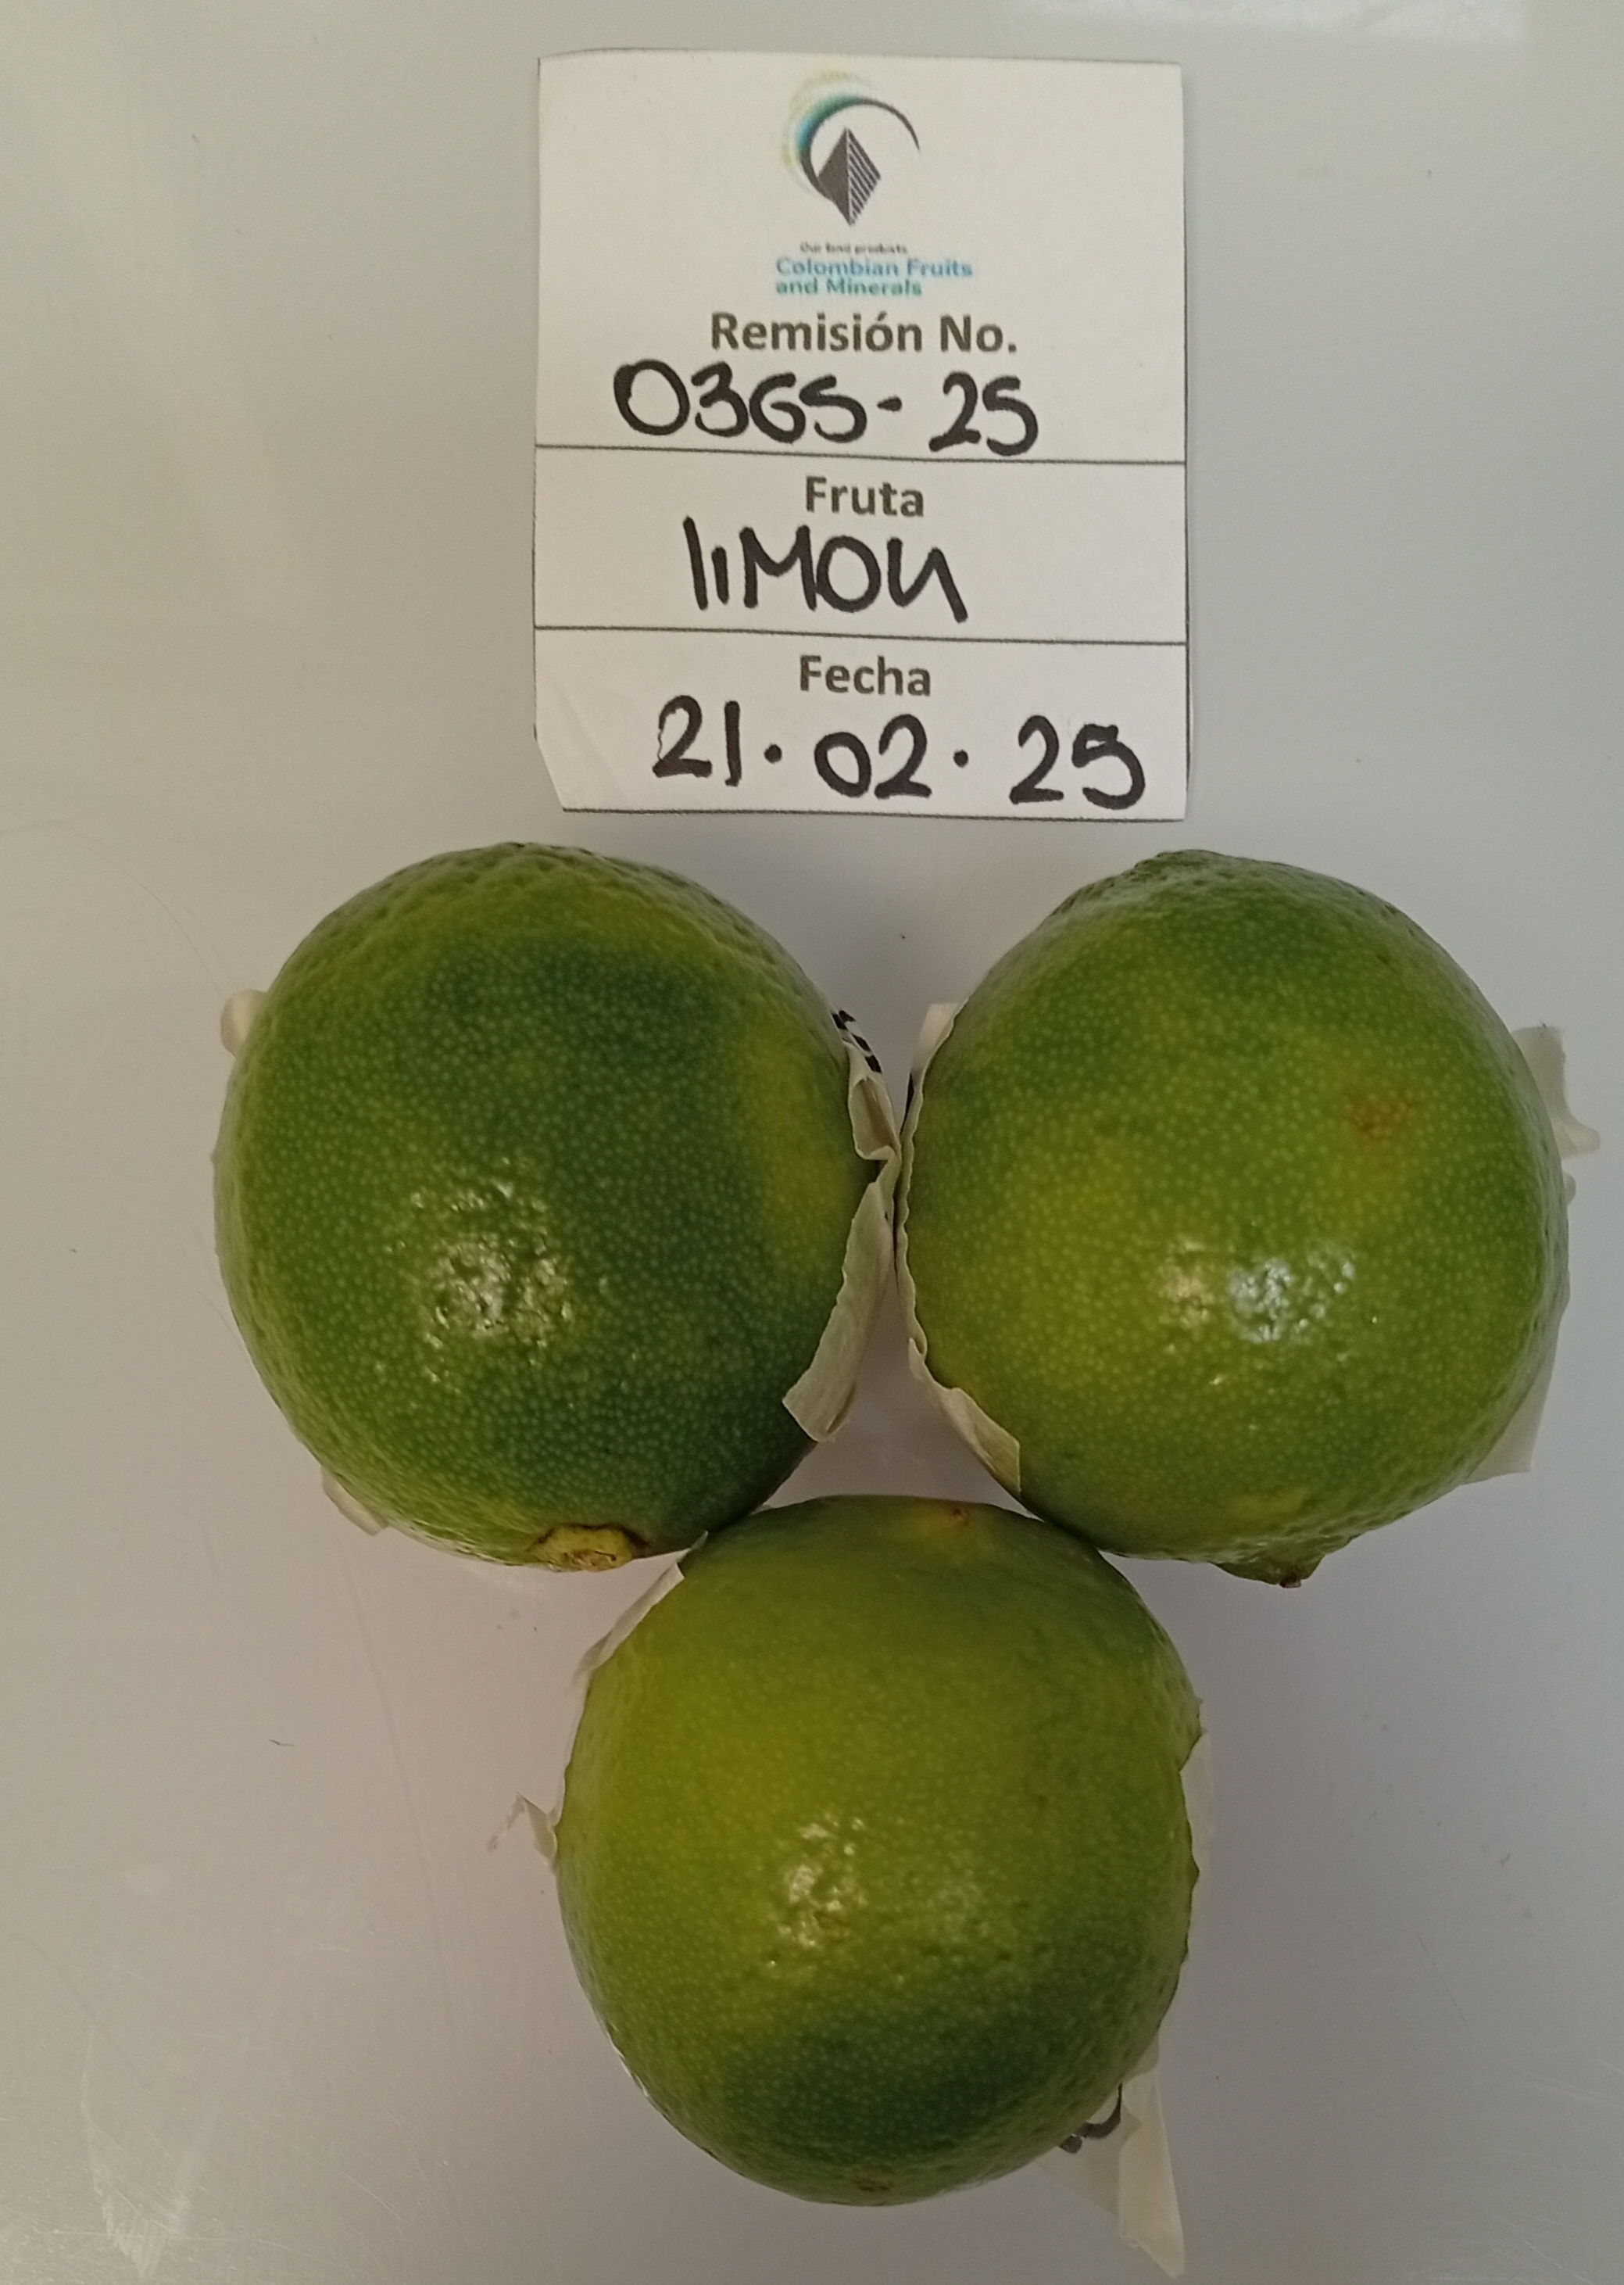 Our food products
Colombian Fruits
and Minerals
Remisión No.
0365-25
Fruta
liMON
Fecha
21.02.25